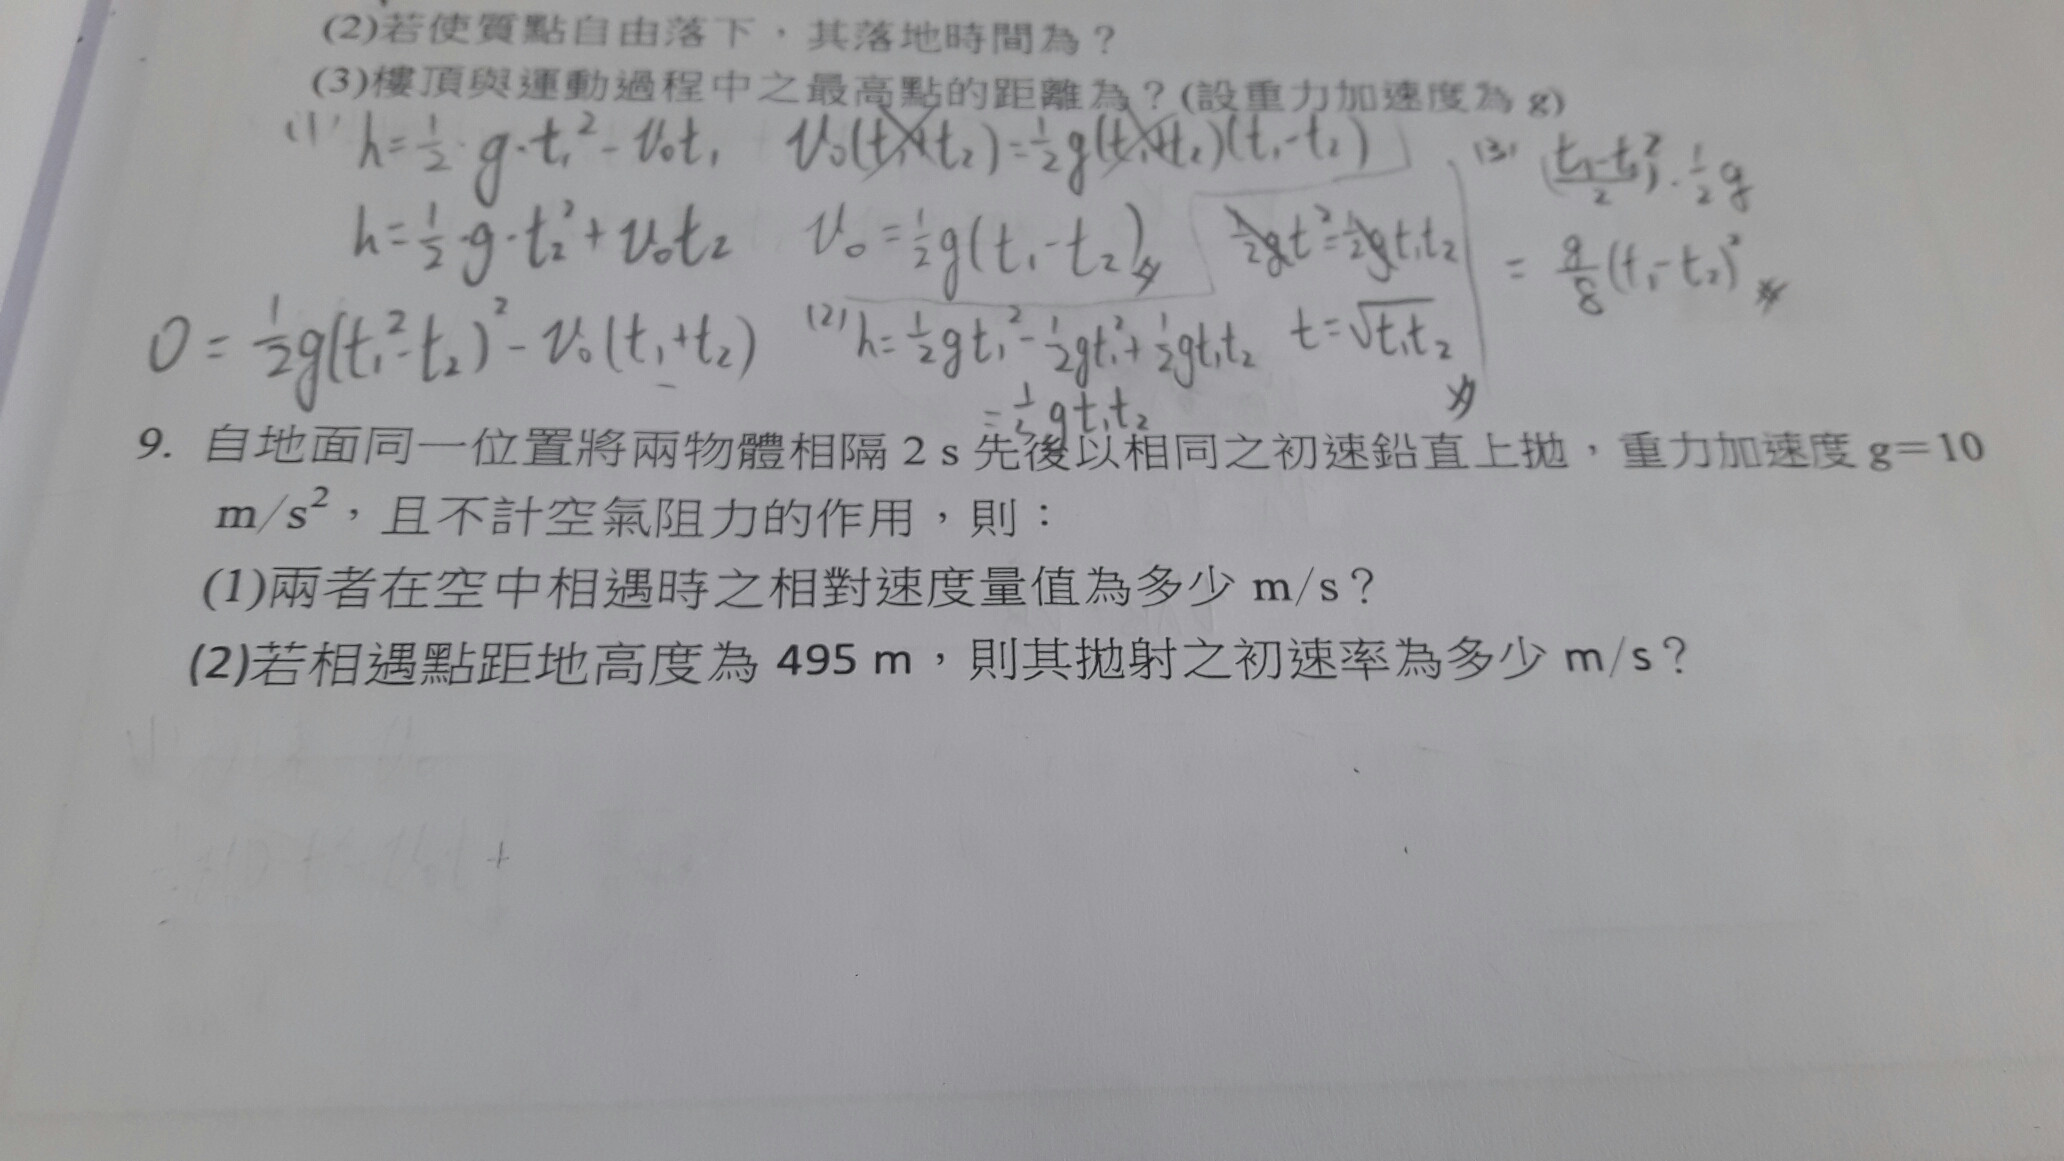 (2)若使質點自由落下，其落地時間為？
(3)樓頂與運動過程中之最高點的距離為？(設重力加速度為 g)
(1) h=½·g·t₁²-v₀t₁
h=½·g·t₂²+v₀t₂
0=½g(t₁²-t₂)²-v₀(t₁+t₂)
v₀(t₁+t₂)=½g(t₁+t₂)(t₁-t₂)
v₀=½g(t₁-t₂)
(2) h=½gt₁²-½gt₁²+½gt₁t₂
=½gt₁t₂
½gt²=½gt₁t₂
t=√t₁t₂
(3) (t₁-t₂/2)²·½g
=g/8(t₁-t₂)²
9. 自地面同一位置將兩物體相隔 2 s 先後以相同之初速鉛直上拋，重力加速度 g＝10
m/s²，且不計空氣阻力的作用，則：
(1)兩者在空中相遇時之相對速度量值為多少 m/s？
(2)若相遇點距地高度為 495 m，則其拋射之初速率為多少 m/s？